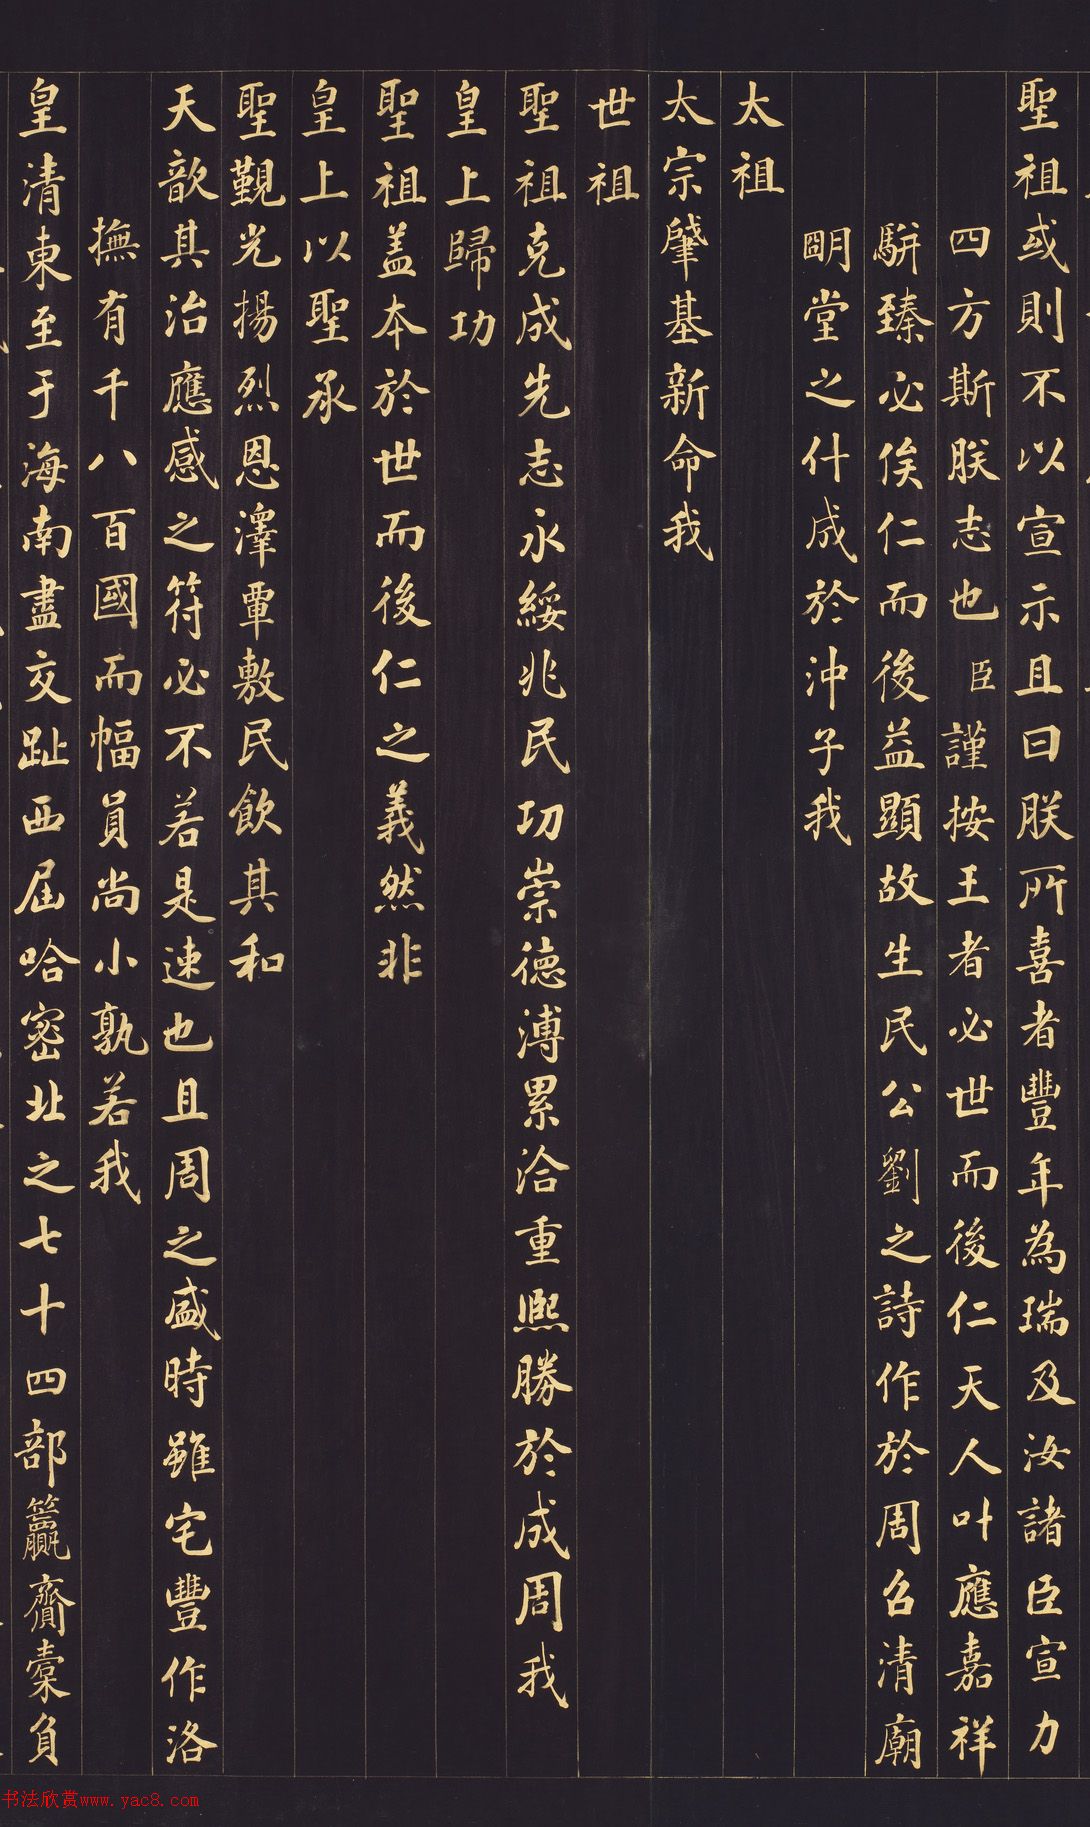 聖祖或則不以宣示且曰朕所喜者豐年為瑞及汝諸臣宣力
四方斯朕志也臣謹按王者必世而後仁天人叶應嘉祥
駢臻必俟仁而後益顯故生民公劉之詩作於周召清廟
朙堂之什成於沖子我
太祖
太宗肇基新命我
世祖
聖祖克成先志永綏兆民功崇德溥累洽重熙勝於成周我
皇上歸功
聖祖盖本於世而後仁之義然非
皇上以聖承
聖覲光揚烈恩澤覃敷民飲其和
天歆其治應感之符必不若是速也且周之盛時雖宅豐作洛
撫有千八百國而幅員尚小孰若我
皇清東至于海南盡交趾西屆哈密北之七十四部籯齎橐負
书法欣赏www.yac8.com